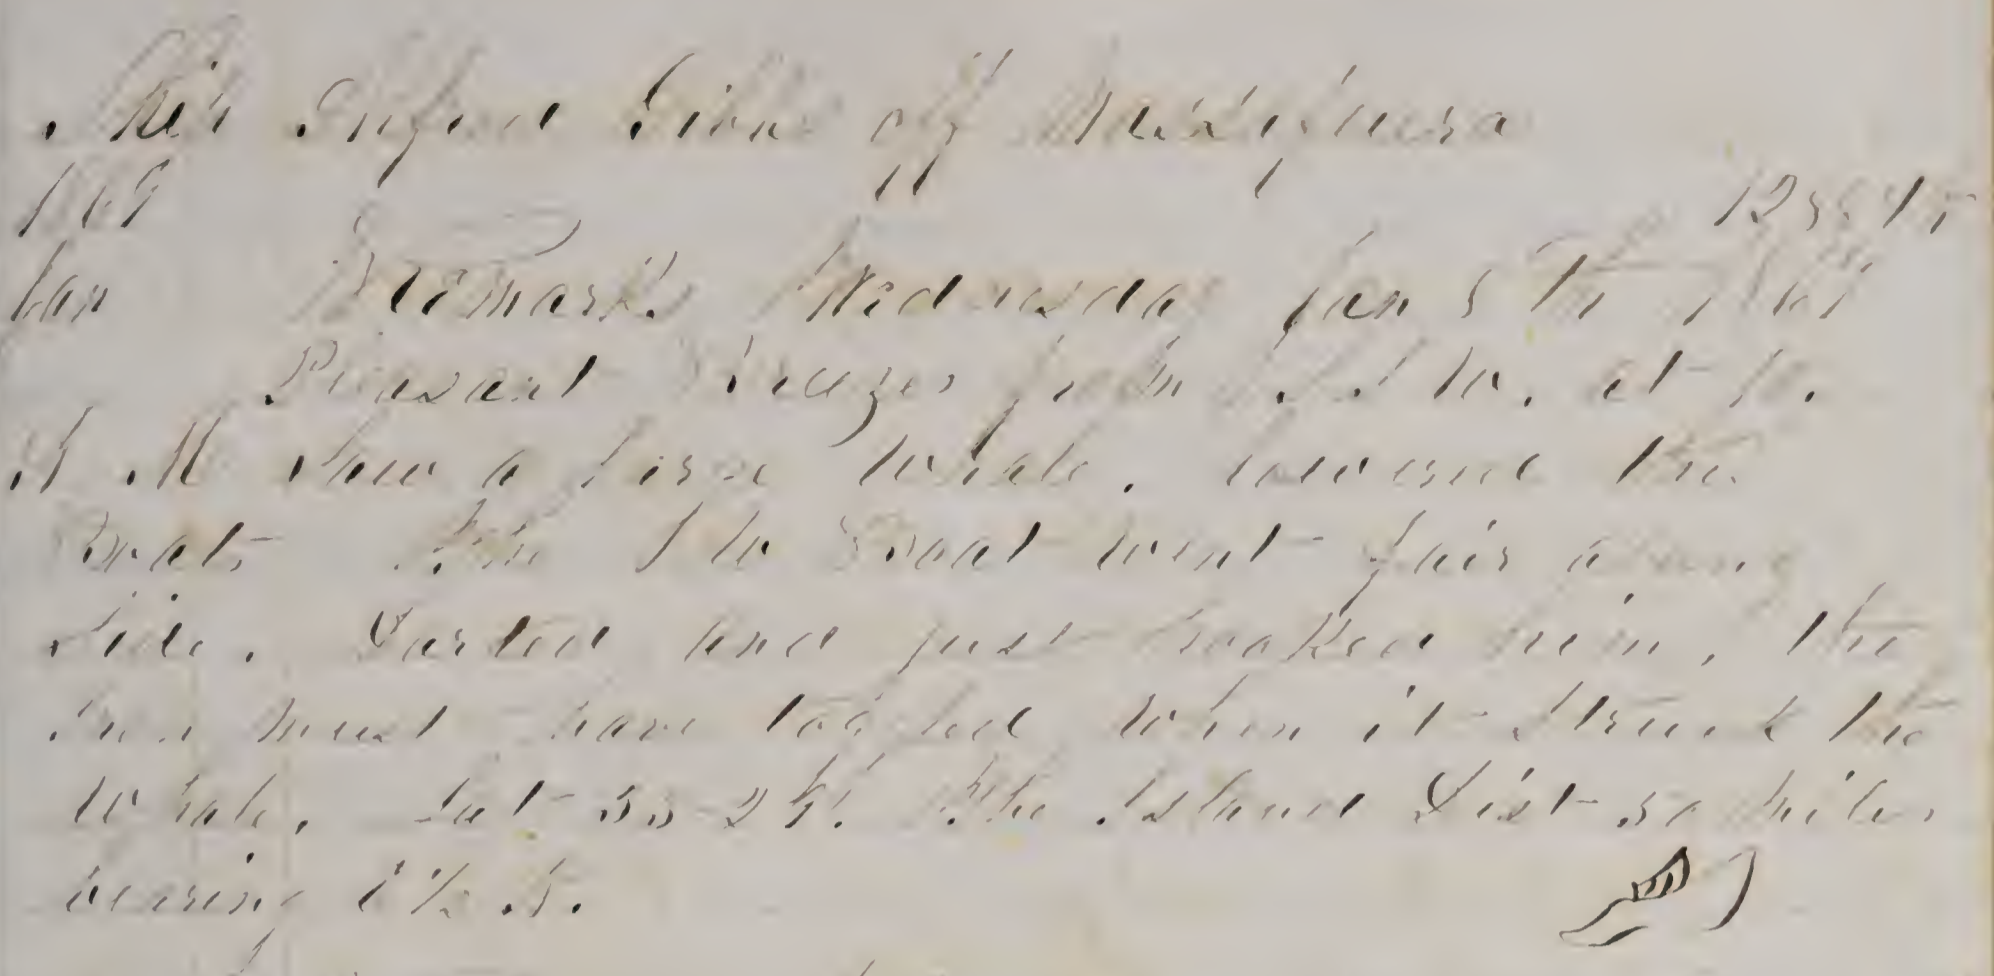 Ship Oxford Gibbs off Massafuera
1869
Jan Remarks Wednesday Jan 5th
Pleasant Breezes from S. S. W. at 10.
A M Saw a large Whale. lowered the
Boats The S W Boat went fair along
Side. Darted and just hooked him, the
Iron must have togled when it Struck the
Whale. Lat 33-24. The Island Dist 30 Miles
bearing E ½ S.